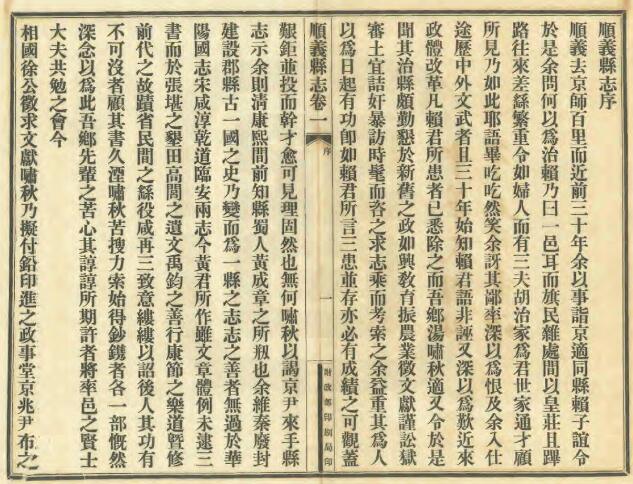 順義縣志序
順義去京師百里而近前三十年余以事詣京適同縣賴子誼令
於是余問何以為治賴乃曰一邑耳而旗民雜處間以皇莊且蹕
路往來差繇繁重令如婦人而有三夫胡治家為君世家通才顧
所見乃如此耶語畢吃吃然笑余訝其鄙率深以為恨及余入仕
途歷中外文武者且三十年始知賴君語非誣又深以為歎近來
政體改革凡賴君所患者已悉除之而吾鄉湯嘯秋適又令於是
聞其治縣頗勤懇於新舊之政如興教育振農業徵文獻謹訟獄
審土宜詰奸暴訪時髦而咨之求志乘而考索之余益重其為人
以為日起有功卽如賴君所言三患並存亦必有成績之可觀蓋
順義縣志卷一
序
一
財政部印刷局印
艱鉅並投而幹才愈可見理固然也無何嘯秋以謁京尹來手縣
志示余則淸康熙間前知縣蜀人黃成章之所刱也余維秦廢封
建設郡縣古一國之史乃變而為一縣之志志之善者無過於華
陽國志宋咸淳乾道臨安兩志今黃君所作雖文章體例未逮三
書而於張堪之墾田高閭之遺文禹鈞之善行康節之樂道曁修
前代之故蹟省民間之繇役咸再三致意縷縷以詔後人其功有
不可沒者顧其書久湮嘯秋苦搜力索始得鈔鐫者各一部慨然
深念以為此吾鄉先輩之苦心其諄諄所期許者將率邑之賢士
大夫共勉之會今
相國徐公徵求文獻嘯秋乃擬付鉛印進之政事堂京兆尹布之